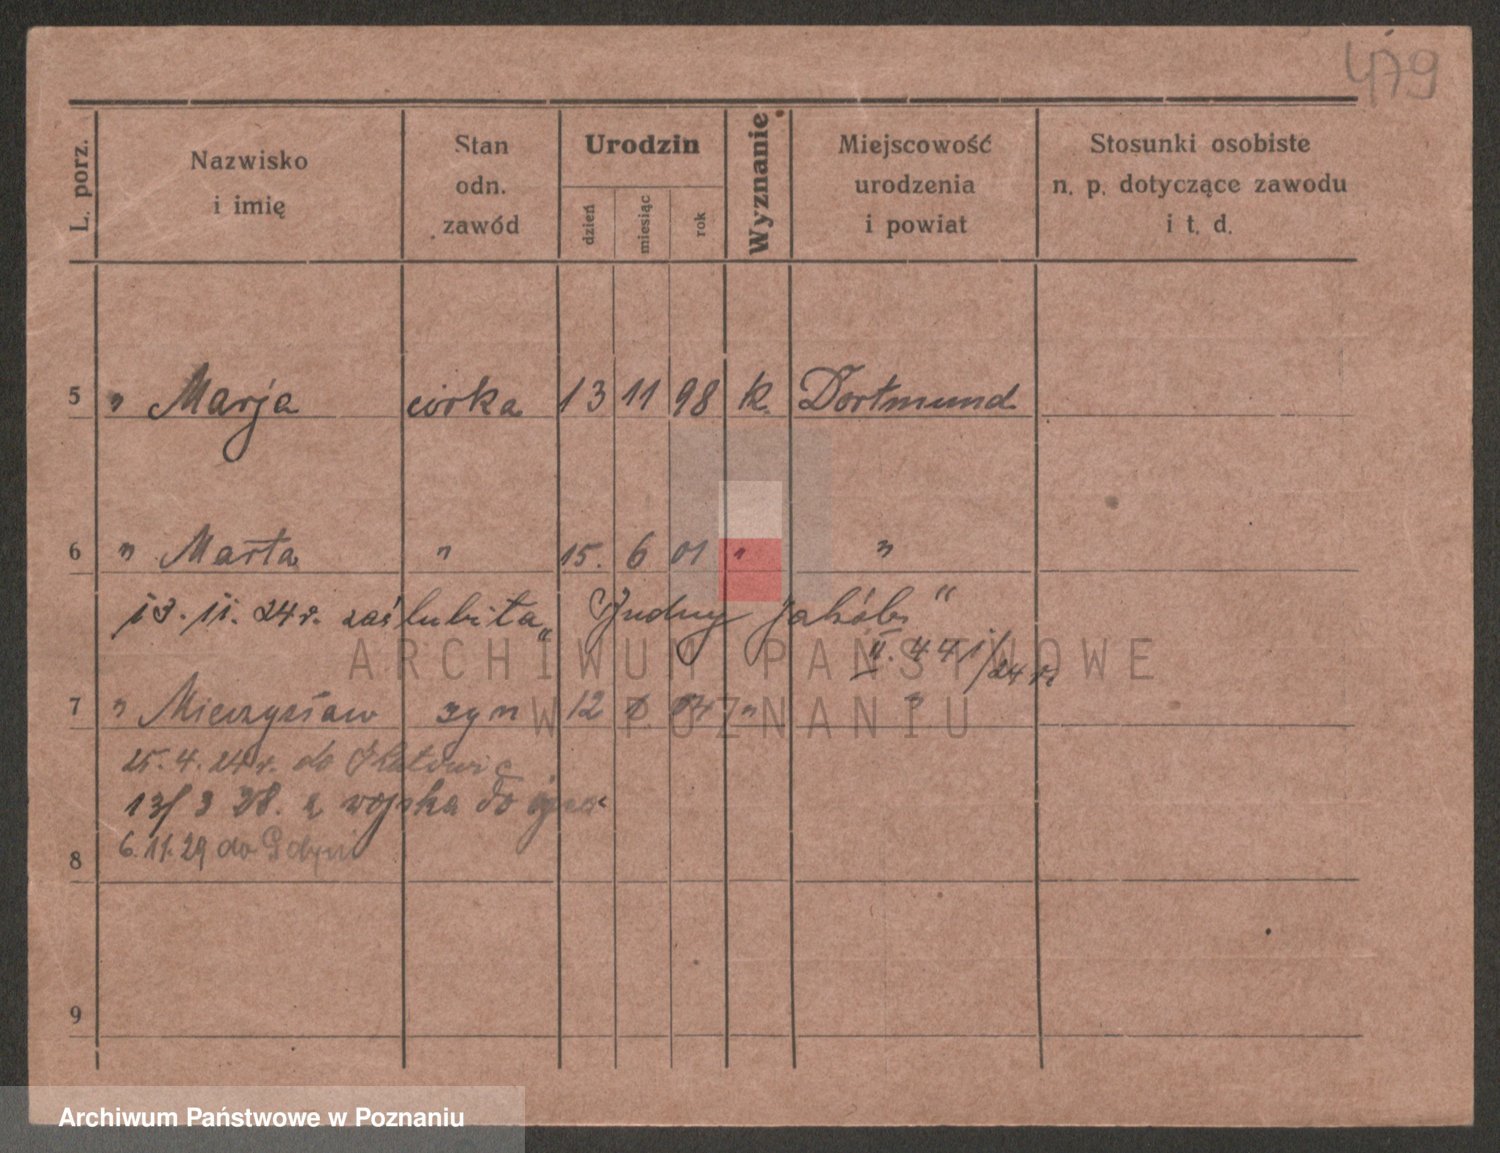 479
L. porz.
Nazwisko
i imię
Stan
odn.
zawód
Urodzin
dzień
miesiąc
rok
Wyznanie
Miejscowość
urodzenia
i powiat
Stosunki osobiste
n. p. dotyczące zawodu
i t. d.
5 " Marja córka 13 11 98 k. Dortmund
6 " Marta " 15. 6 01 " "
13. 11. 24 r. zaślubiła „ Jakób "
II. 441/24 r.
7 " Mieczysław syn 12 04 " "
25. 4. 24 r. do
13/3 28. z wojska do ojca
8
6. 11. 29 do Gdyni
9
ARCHIWUM PAŃSTWOWE
W POZNANIU
Archiwum Państwowe w Poznaniu